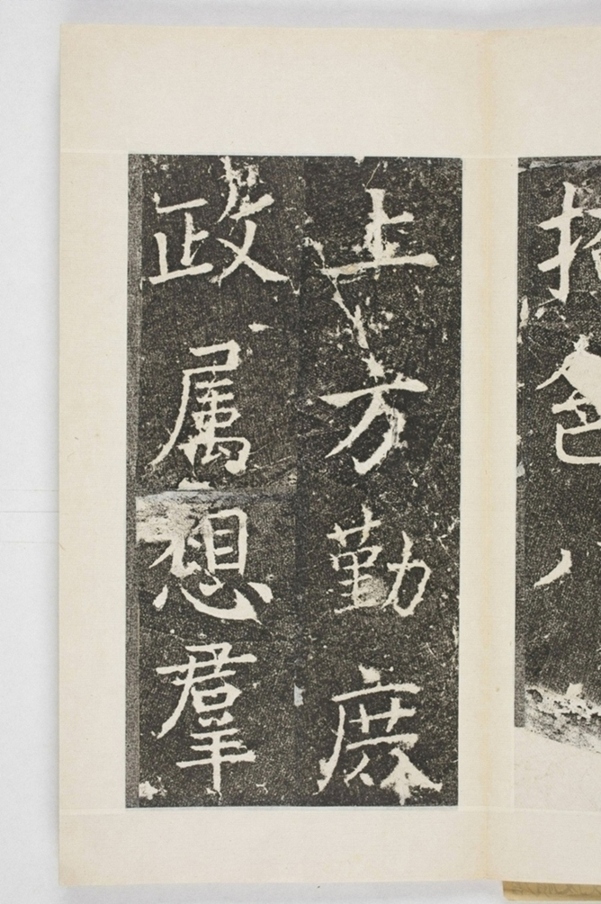 上方勤庶
政属想羣